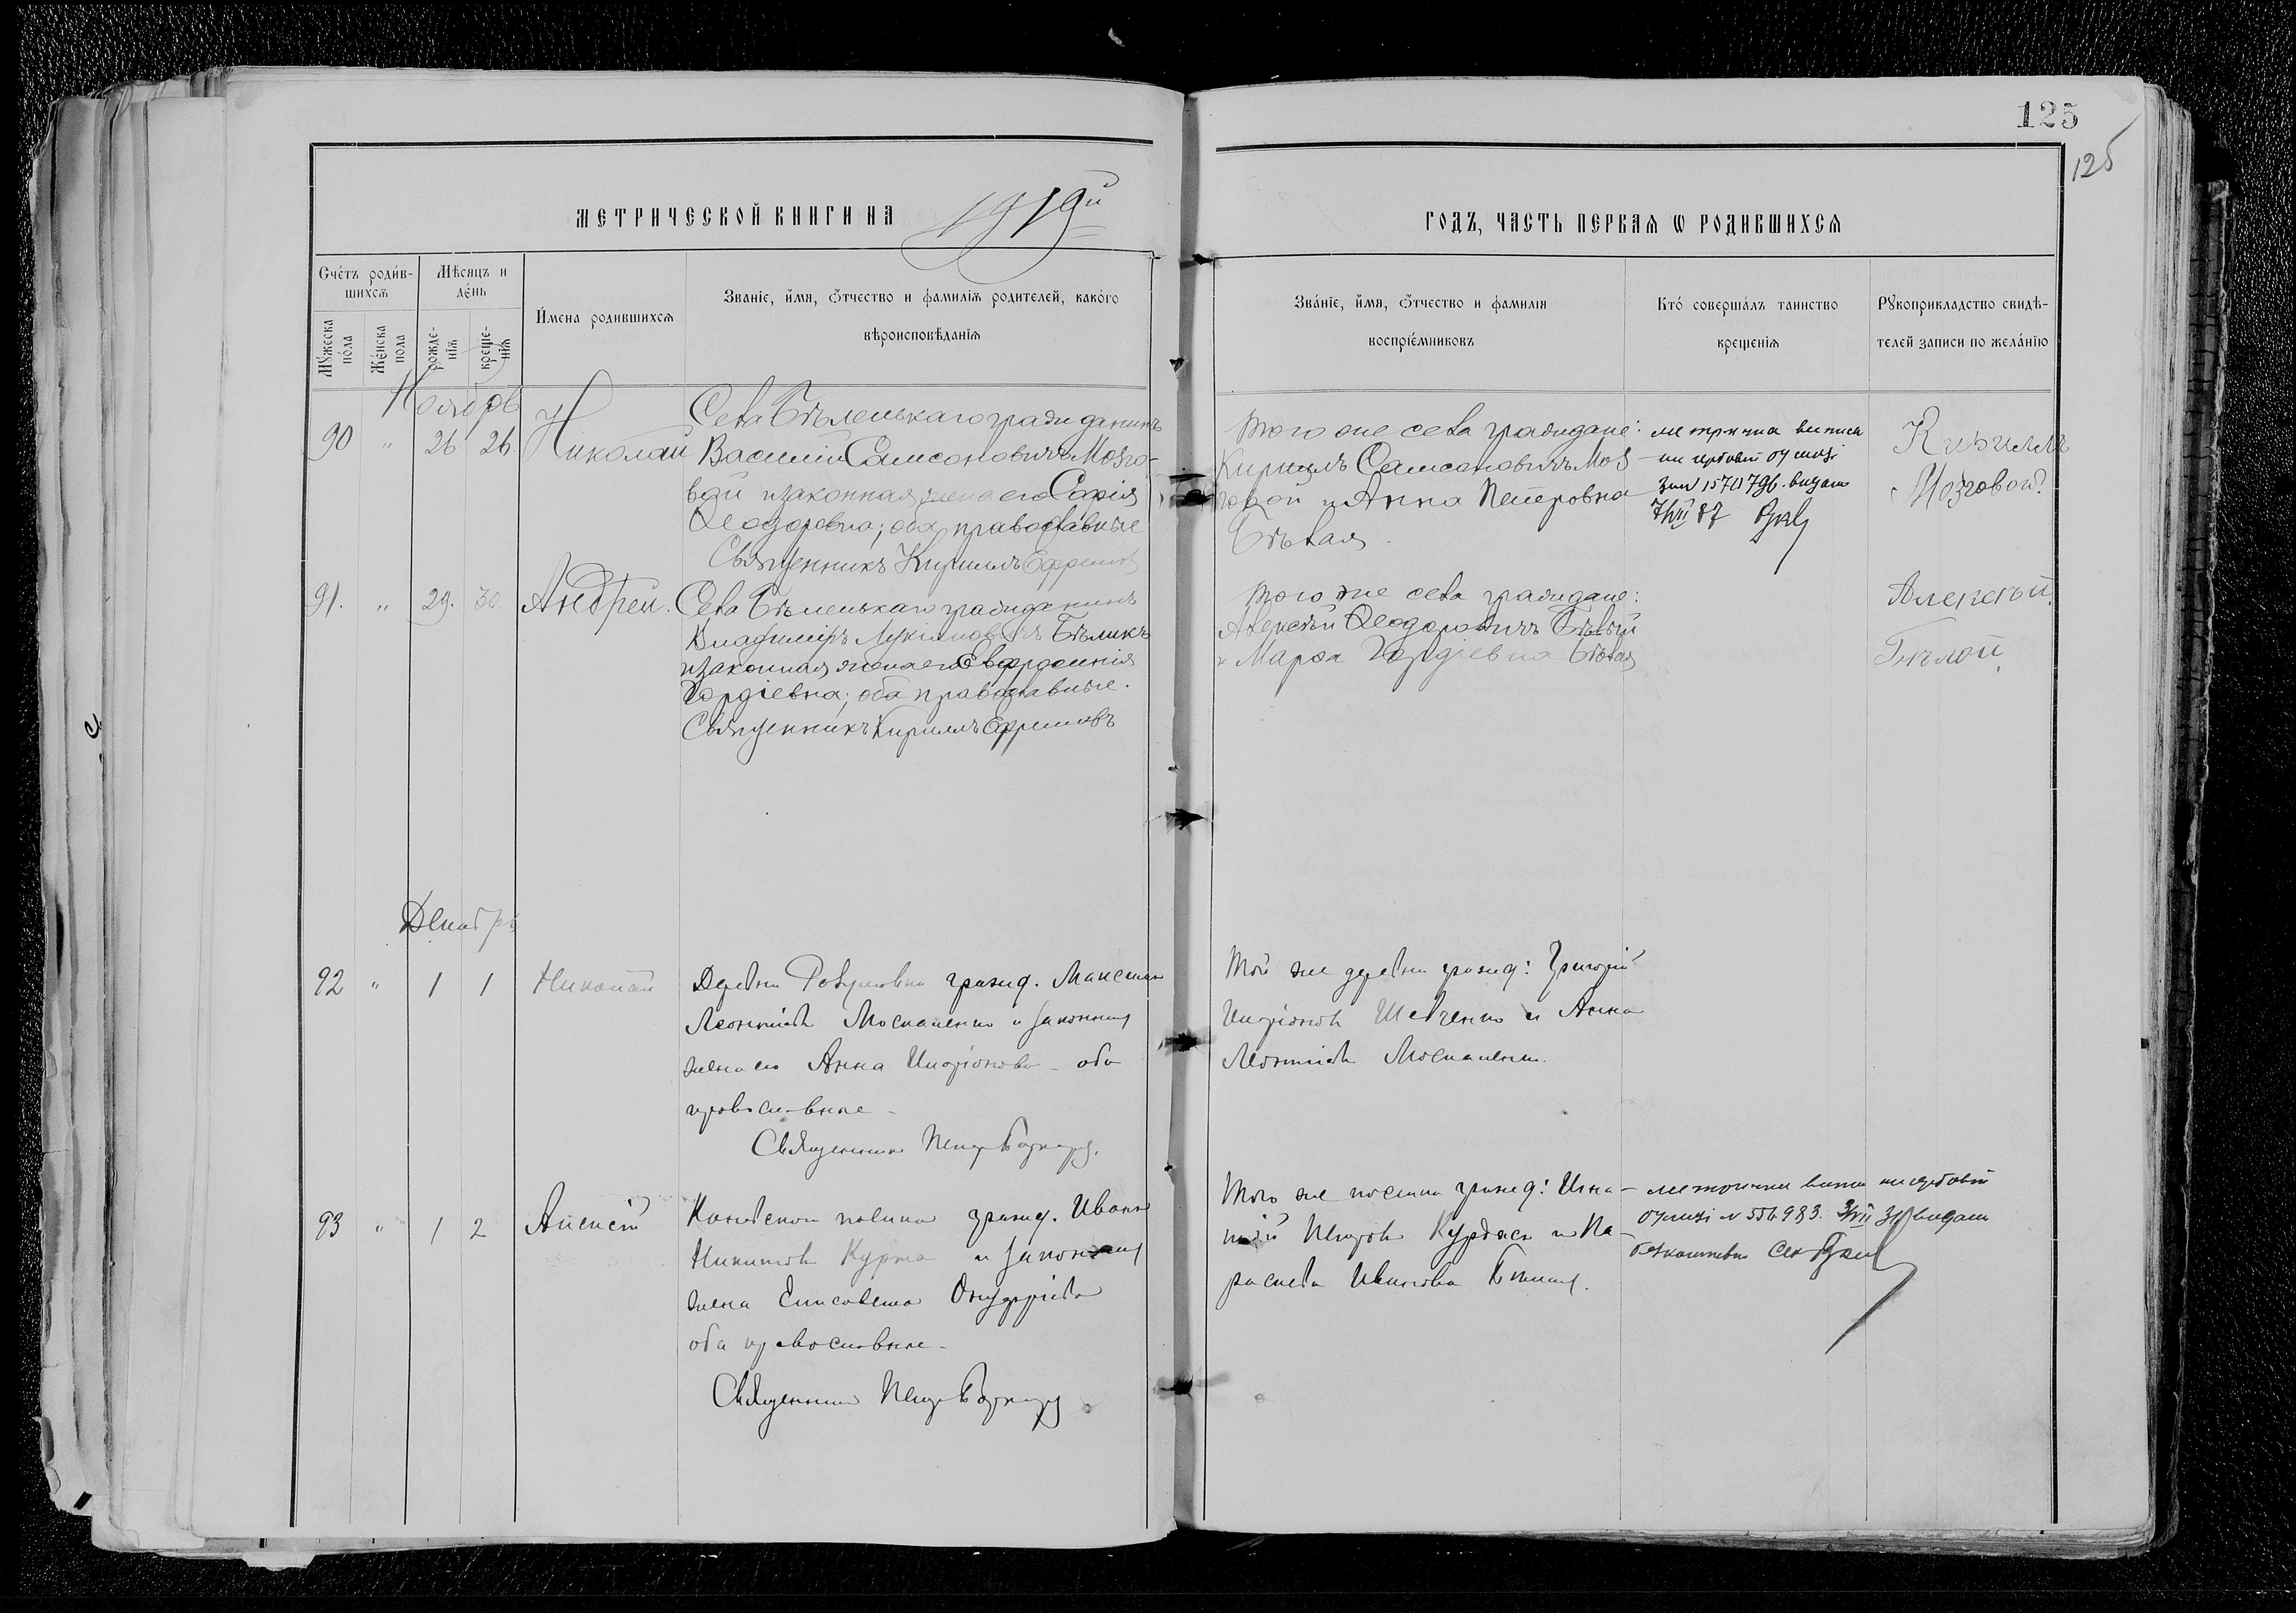 125
125
МЕТРИЧЕСКОЙ КНИГИ НА 1919й
ГОДЪ, ЧАСТЬ ПЕРВАЯ Ѡ РОДИВШИХСЯ
Счéтъ роди́в-
шихся
Мѣсяцъ и
дéнь
Мꙋжеска
пóла
Жéнска
пола
рожде-
нія
креще-
нія
И́мена родившихся
Званіе, и́мя, ѻ҆тчество и фамилія родителей, какóго
вѣроисповѣданія
Звáніе, и́мя, ѻ҆тчество и фамилія
воспріéмниковъ
Ктó совершáлъ таинство
крещенія
Рꙋкоприкладство свидѣ-
телей записи по желáнію
Ноябрь
90 " 26 26. Николай
Села Бѣленькаго гражданинъ
Василій Самсоновичъ Мозго-
вой и законная жена его Софія
Ѳеодоровна; оба православные
Священникъ Кириллъ Ефремовъ
Того же села граждане:
Кириллъ Самсоновичъ Моз-
говой и Анна Петровна
Бѣлая.
метрична виписк
1570796. видано
87
Кириллъ
Мозговой
91. " 29. 30. Андрей.
Села Бѣленькаго гражданинъ
Владиміръ Лукіяновичъ Бѣликъ
и законная жена его Евфросинія
Гордіевна; оба православные.
Священникъ Кириллъ Ефремовъ
Того же села граждане:
Алексѣй Ѳеодоровичъ Бѣлый
и Марѳа Гордіевна Бѣлая
Алексѣй
Бѣлой
Декабрь
92 " 1 1 Николай
Деревни гражд. Максим
Леонтіевъ Москаленко и законная
жена его Анна Иларіонова - оба
православные -
Священник Петр
Той же деревни гражд: Григорій
Иларіоновъ Шевченко и Анна
Леонтіева Москаленко.
93 " 1 2 Алексѣй
гражд. Иванъ
Никитовъ Курта и законная
жена Елисавета Онуфріева
оба православные -
Священник Петр
Того же поселка гражд: Игна-
тій Петровъ и Па-
раскева Иванова
метрична
N 556983. видано
безкоштовно